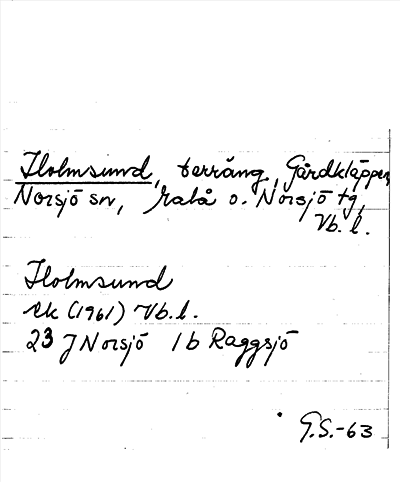 Holmsund, terräng, Gårdkläppen,
Norsjö sn, o. Norsjö tg,
Vb. l.
Holmsund
ek (1961) Vb. l.
23 J Norsjö 1 b Raggsjö
G.S.-63